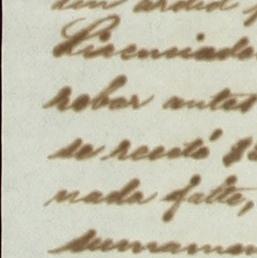 un ardid
Licenciado
robar antes
se recetó
nada falte,
sumamen